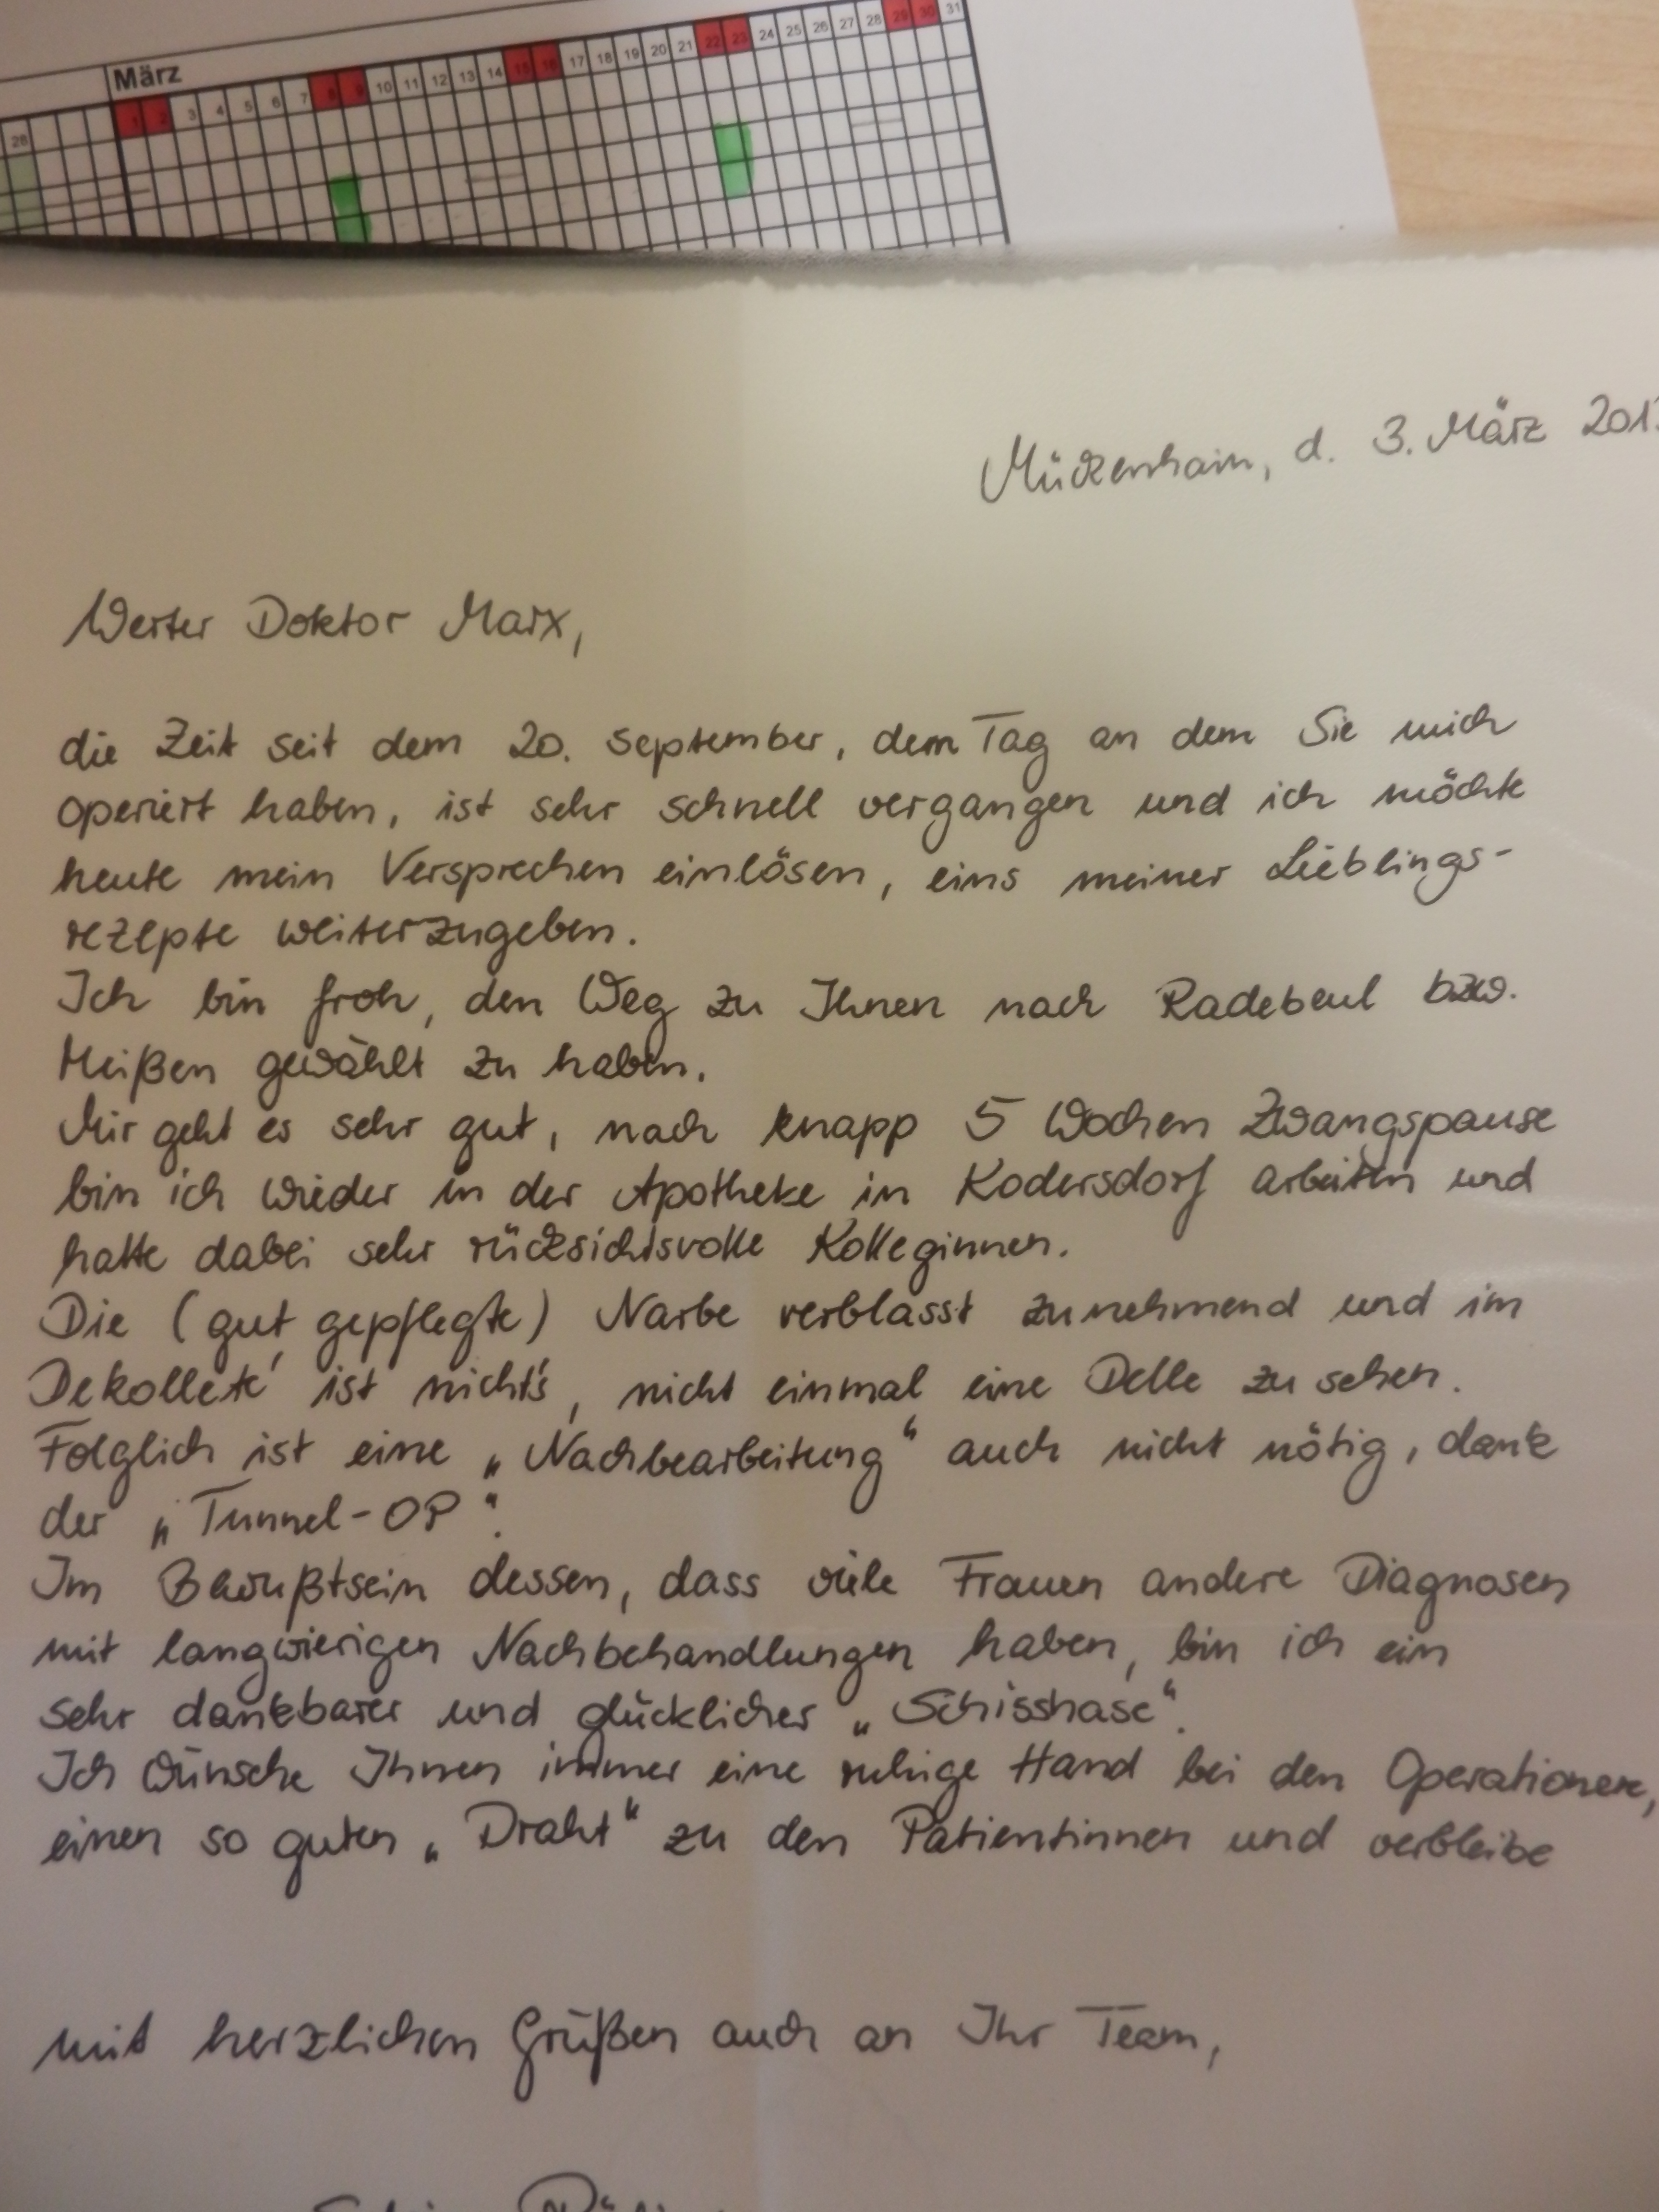 März
28 1 2 3 4 5 6 7 8 9 10 11 12 13 14 15 16 17 18 19 20 21 22 23 24 25 26 27 28 29 30 31
Mückenhain, d. 3. März 201
Werter Doktor Marx,
die Zeit seit dem 20. September, dem Tag an dem Sie mich
operiert haben, ist sehr schnell vergangen und ich möchte
heute mein Versprechen einlösen, eins meiner Lieblings-
rezepte weiterzugeben.
Ich bin froh, den Weg zu Ihnen nach Radebeul bzw.
Meißen gewählt zu haben.
Mir geht es sehr gut, nach knapp 5 Wochen Zwangspause
bin ich wieder in der Apotheke in Kodersdorf arbeiten und
hatte dabei sehr rücksichtsvolle Kolleginnen.
Die (gut gepflegte) Narbe verblasst zunehmend und im
Dekolleté ist nichts, nicht einmal eine Delle zu sehen.
Folglich ist eine „Nachbearbeitung“ auch nicht nötig, dank
der „Tunnel-OP“.
Im Bewußtsein dessen, dass viele Frauen andere Diagnosen
mit langwierigen Nachbehandlungen haben, bin ich ein
sehr dankbarer und glücklicher „Schisshase“.
Ich wünsche Ihnen immer eine ruhige Hand bei den Operationen,
einen so guten „Draht“ zu den Patientinnen und verbleibe
mit herzlichen Grüßen auch an Ihr Team,